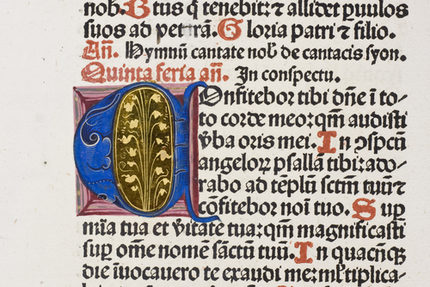 nob. Btus q̄ tenebit: ⁊ allidet p̱uulos
suos ad petrā. Gloria patri ⁊ filio.
Añ. Hymnū cantate nob̄ de cantacis syon.
Quinta feria añ. In conspectu.
COnfitebor tibi dn̄e ī to-
to corde meo: qm̄ audisti
v̄ba oris mei. In ɔspcū
angeloꝝ psallā tibi: ado-
rabo ad tēplū sctm̄ tuū ⁊
cōfitebor noī tuo. Sup
mīa tua et v̄itate tua: qm̄ magnificasti
sup om̄e nomē sanctū tuū. In quacūqꝫ
die īuocauero te exaudi me: ml̄tiplica-